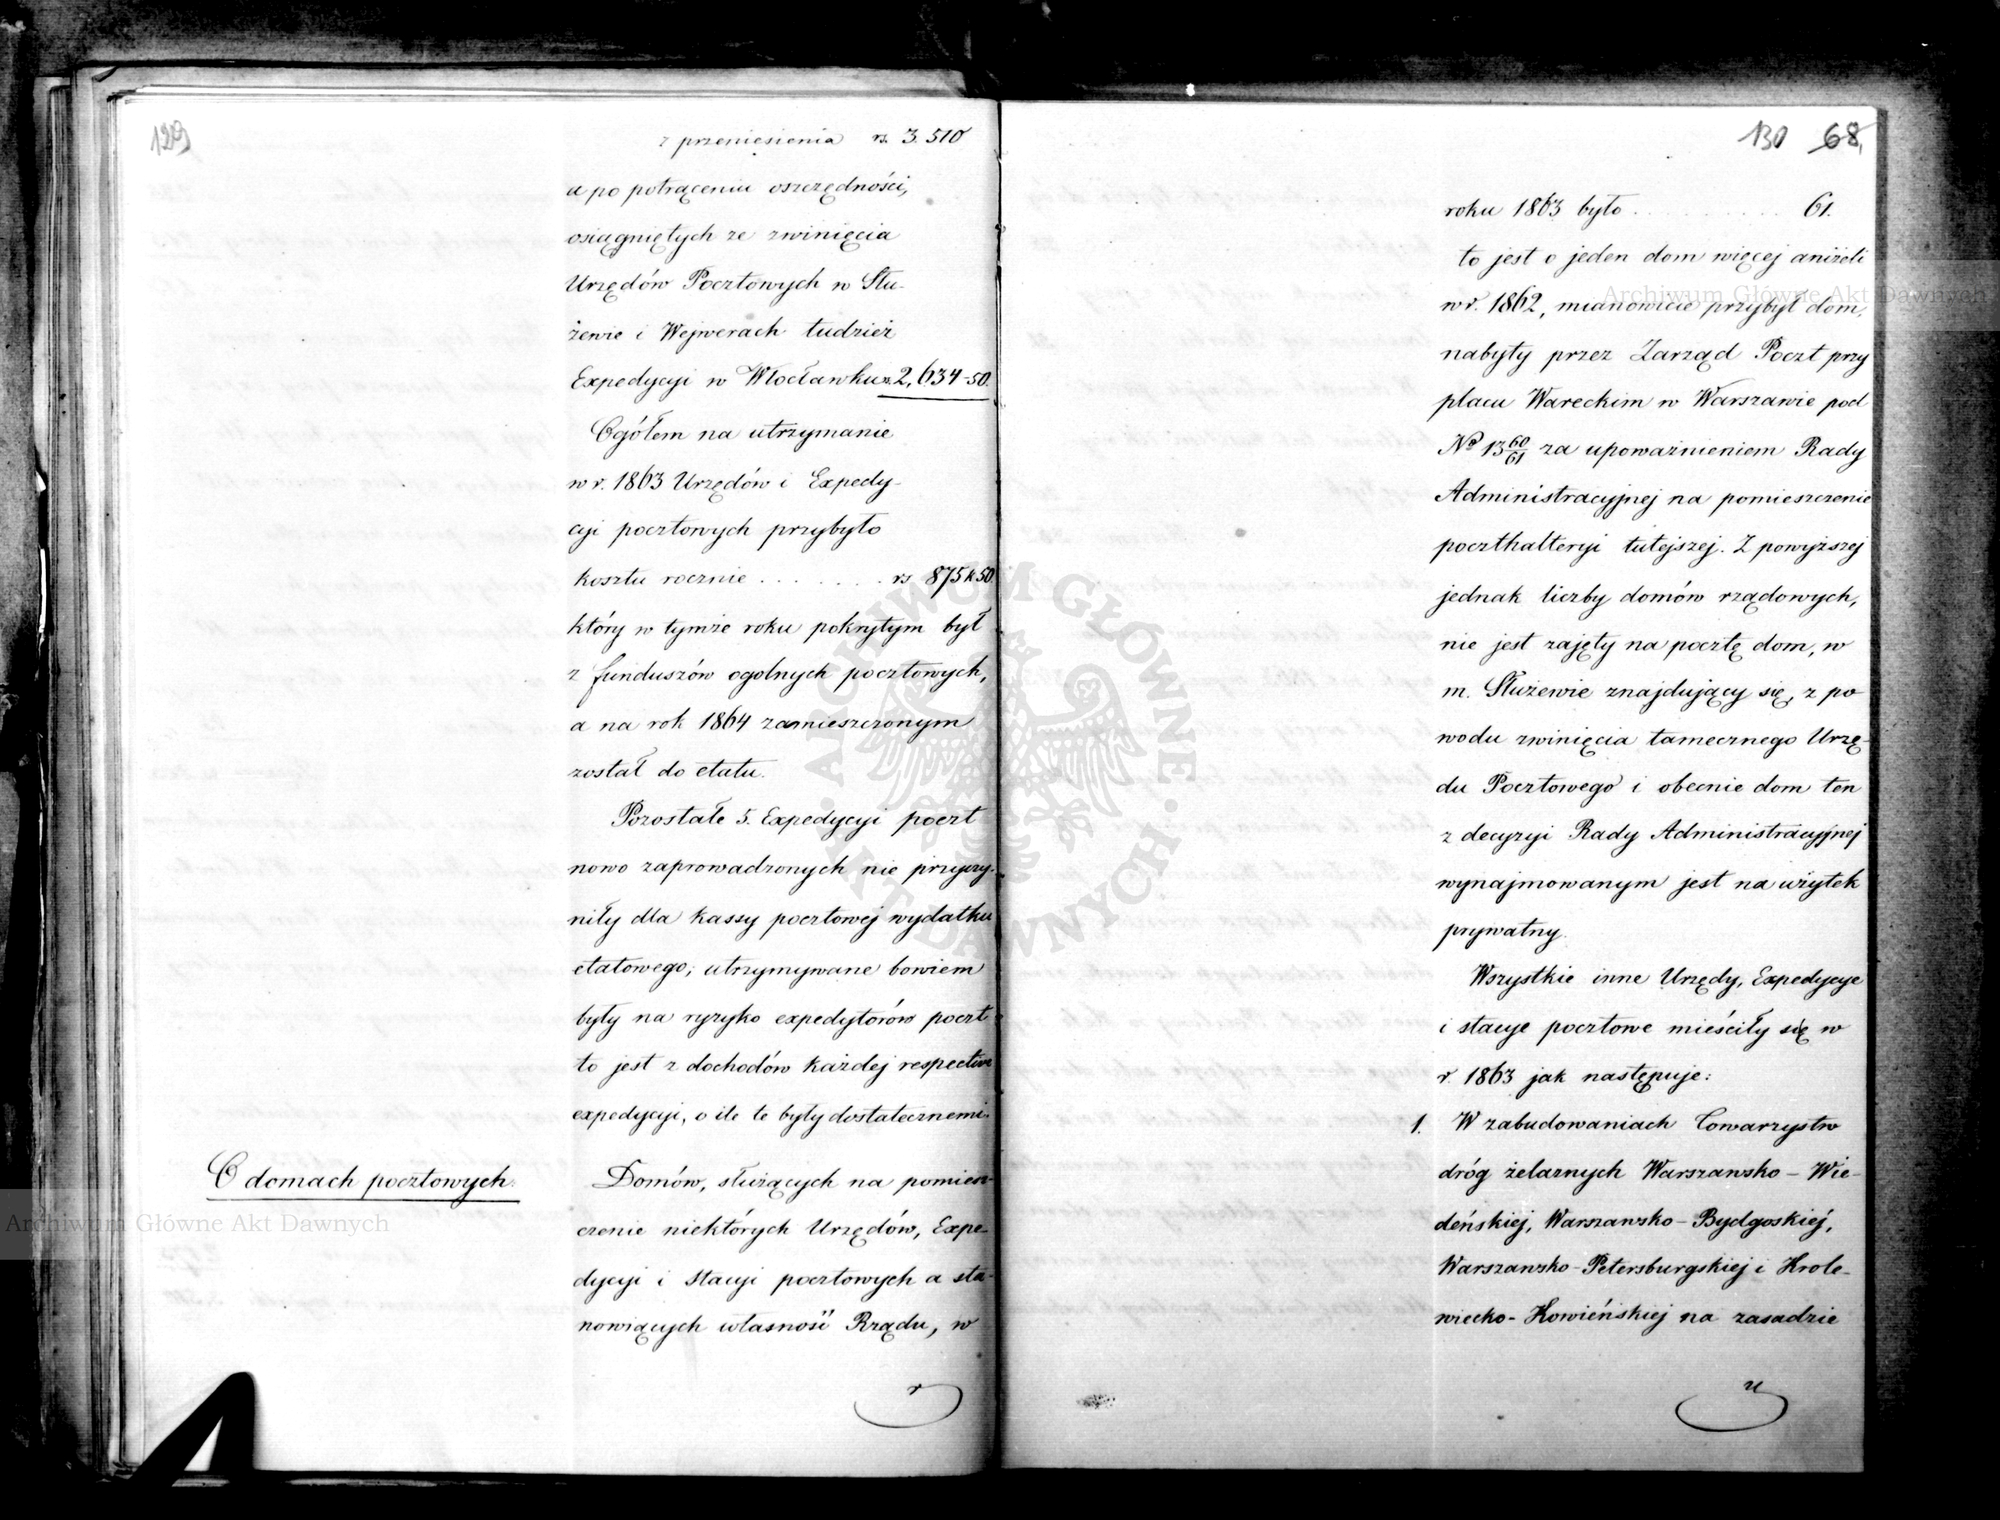 129
z przeniesienia rs. 3.510
a po potrąceniu oszczędności,
osiągniętych ze zwinięcia
Urzędów Pocztowych w Słu-
żewie i Wejwerach tudzież
Expedycyi w Włocławku rs. 2,634-50.
Ogółem na utrzymanie
w r. 1863 Urzędów i Expedy-
cyi pocztowych przybyło
kosztu rocznie . . . . . . . rs 875 k 50
który w tymże roku pokrytym był
z funduszów ogolnych pocztowych,
a na rok 1864 zamieszczonym
został do etatu.
Pozostałe 5. Expedycyi poczt
nowo zaprowadzonych nie przyczy-
niły dla kassy pocztowej wydatku
etatowego; utrzymywane bowiem
były na ryzyko expedytorów poczt
to jest z dochodów każdej respective
expedycyi, o ile te były dostatecznemi.
O domach pocztowych.
Domów, służących na pomiesz-
czenie niektórych Urzędów, Expe-
dycyi i stacyi pocztowych a sta-
nowiących własność Rządu, w
r
130 68
roku 1863 było . . . . . . . . . . 61.
to jest o jeden dom więcej aniżeli
w r. 1862, mianowicie przybył dom,
nabyty przez Zarząd Poczt przy
placu Wareckim w Warszawie pod
No 13 60/61 za upoważnieniem Rady
Administracyjnej na pomieszczenie
poczthalteryi tutejszej. Z powyższej
jednak liczby domów rządowych,
nie jest zajęty na pocztę dom, w
m. Służewie znajdujący się, z po
wodu zwinięcia tamecznego Urzę-
du Pocztowego i obecnie dom ten
z decyzyi Rady Administracyjnej
wynajmowanym jest na użytek
prywatny.
Wszystkie inne Urzędy, Expedycye
i stacye pocztowe mieściły się w
r. 1863 jak następuje:
1. W zabudowaniach Towarzystw
dróg żelaznych Warszawsko - Wie-
deńskiej, Warszawsko - Bydgoskiej,
Warszawsko - Petersburgskiej i Krole-
wiecko - Kowieńskiej na zasadzie
u
Archiwum Główne Akt Dawnych
Archiwum Główne Akt Dawnych
ARCHIWUM GŁÓWNE AKT DAWNYCH